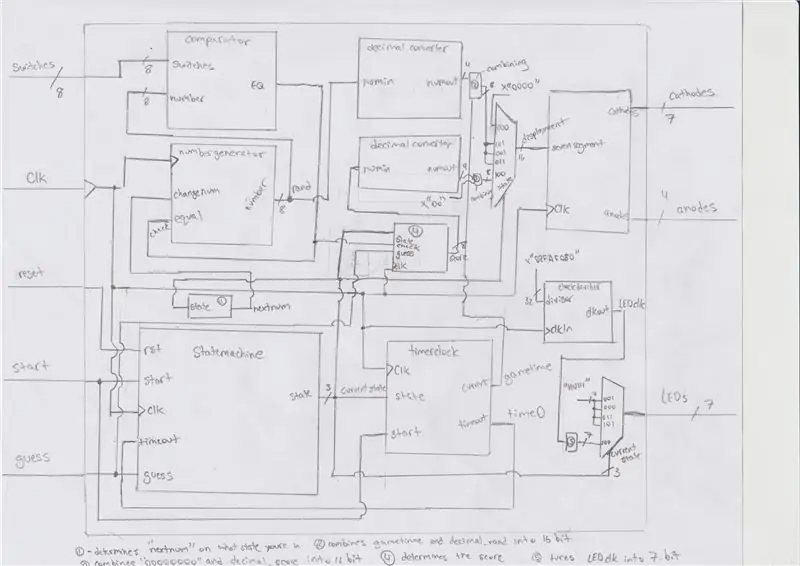 comparator
switches
8
number
8
EQ
switches
8
decimal converter
numin
numout
4
combining
8
x"0000"
000
101
001
011
100
displayment
16
cathodes
7
sevensegment
anodes
4
anodes
Clk
Clk
numbergenerator
changenum
equal
check
number
8
rand
decimal converter
numin
numout
x"00"
4
State
check
guess
clk
score
reset
state
1
nextnum
x"02FAF080"
32
clockdivider
divider
clkout
clkIn
LEDclk
start
Statemachine
rst
start
Clk
timeout
guess
state
3
currentstate
timerclock
Clk
state
start
current
timeout
gametime
time0
001
000
011
101
7
current
state
3
LEDs
7
guess
1 - determines "nextnum" on what state youre in
2 combines gametime and decimal_rand into 16 bit
combines "00000000" and decimal_score into 16 bit
4 determines the score
turns LEDclk into 7-bit